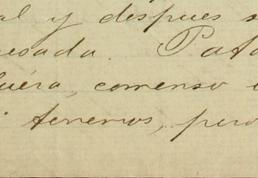 al y despues s
esada. Pata
uéra, comenso
tenemos, pero